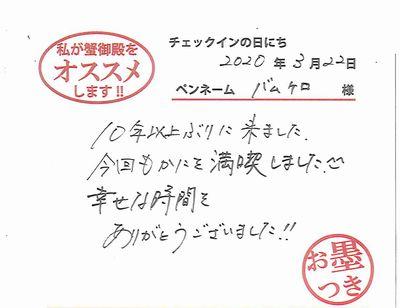 私が蟹御殿を
オススメ
します!!
チェックインの日にち
2020 年 3 月 22 日
ペンネーム バムケロ 様
10年以上ぶりに来ました.
今回もかにを満喫しました
幸せな時間を
ありがとうございました!!
お墨
つき